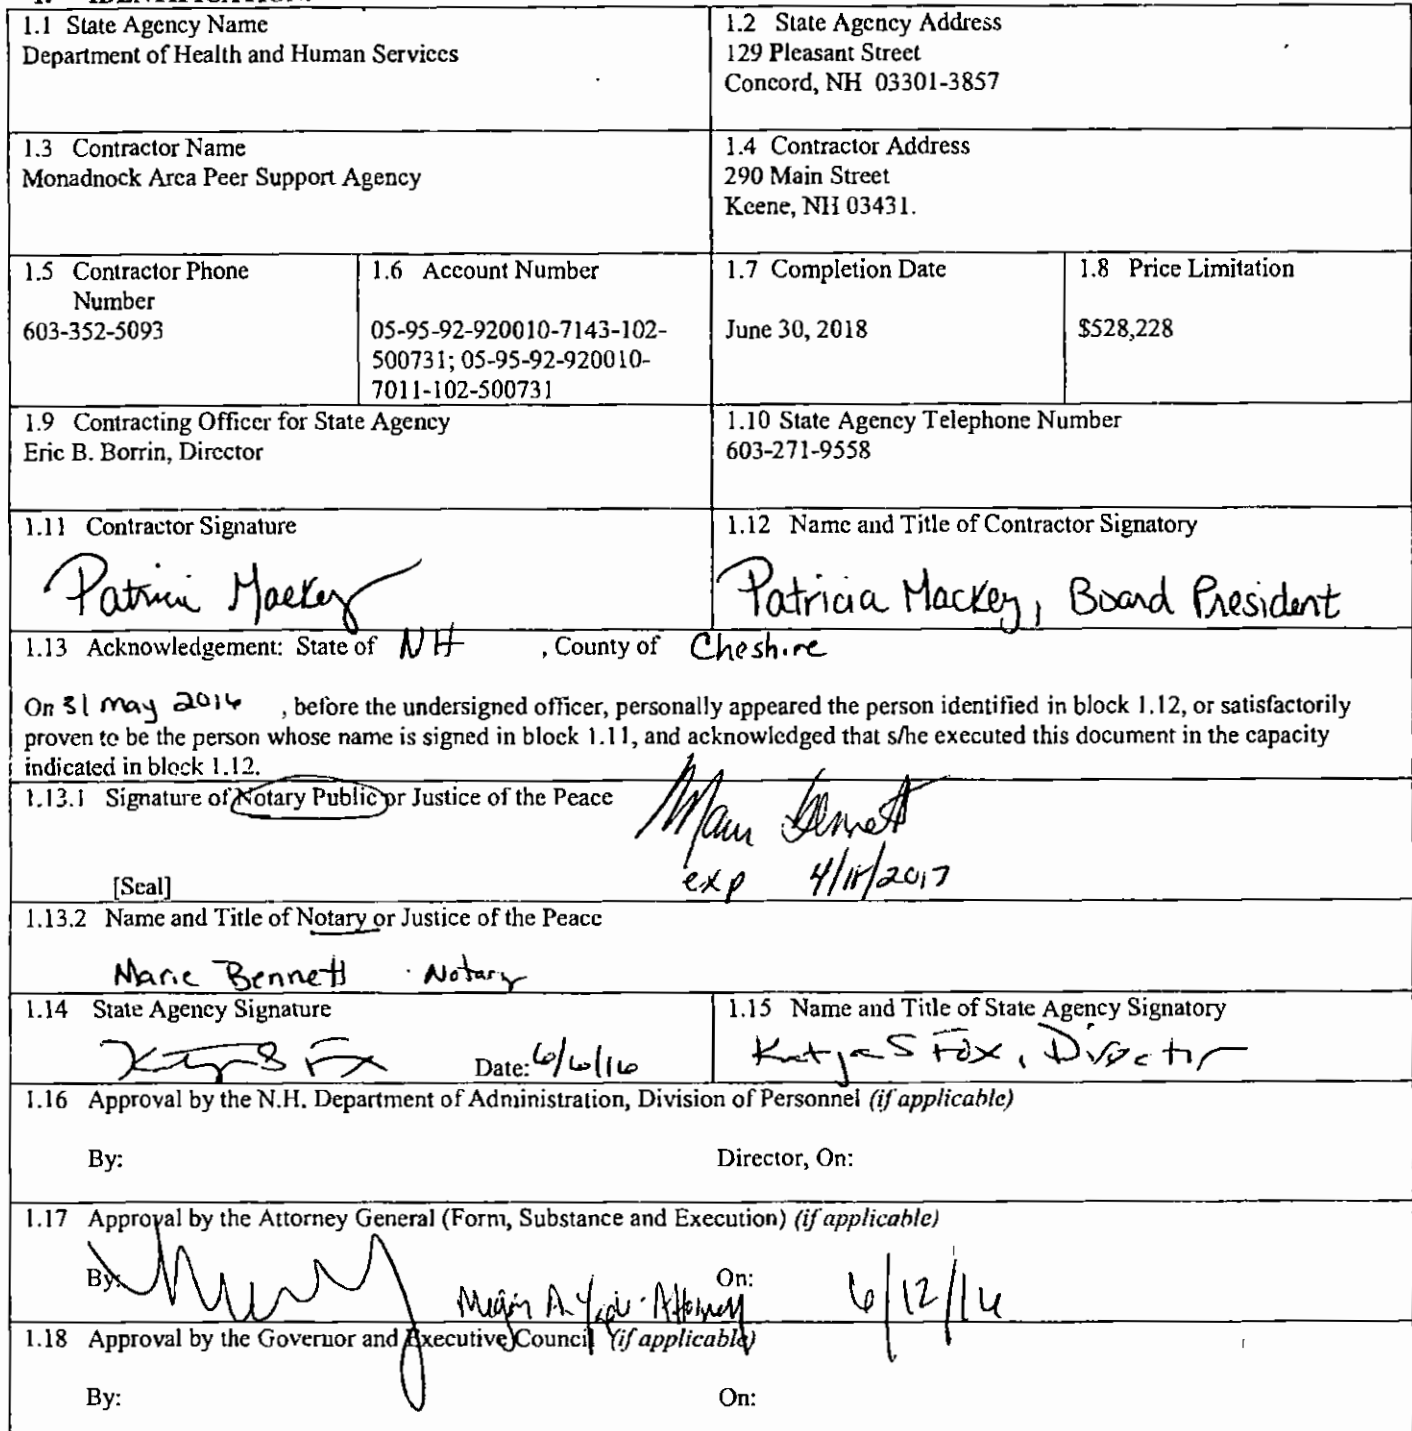 1.1 State Agency Name
Department of Health and Human Services
1.2 State Agency Address
129 Pleasant Street
Concord, NH 03301-3857
1.3 Contractor Name
Monadnock Area Peer Support Agency
1.4 Contractor Address
290 Main Street
Keene, NH 03431.
1.5 Contractor Phone
Number
603-352-5093
1.6 Account Number
05-95-92-920010-7143-102-
500731; 05-95-92-920010-
7011-102-500731
1.7 Completion Date
June 30, 2018
1.8 Price Limitation
$528,228
1.9 Contracting Officer for State Agency
Eric B. Borrin, Director
1.10 State Agency Telephone Number
603-271-9558
1.11 Contractor Signature
Patricia Mackey
1.12 Name and Title of Contractor Signatory
Patricia Mackey, Board President
1.13 Acknowledgement: State of NH , County of Cheshire
On 31 may 2016 , before the undersigned officer, personally appeared the person identified in block 1.12, or satisfactorily
proven to be the person whose name is signed in block 1.11, and acknowledged that s/he executed this document in the capacity
indicated in block 1.12.
1.13.1 Signature of Notary Public or Justice of the Peace
Marie Bennett
exp 4/18/2017
[Seal]
1.13.2 Name and Title of Notary or Justice of the Peace
Marie Bennett Notary
1.14 State Agency Signature
Date: 6/6/16
1.15 Name and Title of State Agency Signatory
Katja S Fox, Director
1.16 Approval by the N.H. Department of Administration, Division of Personnel (if applicable)
By:
Director, On:
1.17 Approval by the Attorney General (Form, Substance and Execution) (if applicable)
By:
A. Attorney
On: 6/12/16
1.18 Approval by the Governor and Executive Council (if applicable)
By:
On: